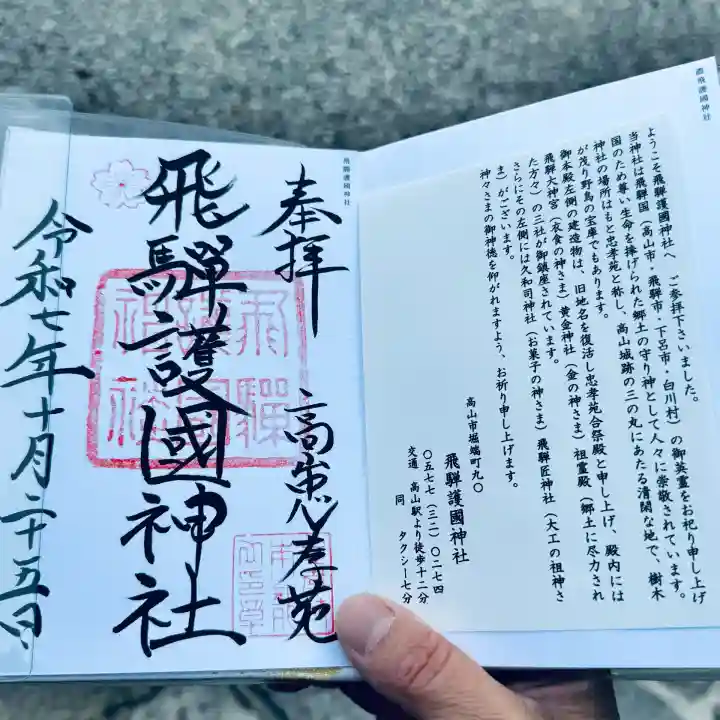 濃飛護國神社
ようこそ飛騨護國神社へ　ご参拝下さいました。
当神社は飛騨国（高山市・飛騨市・下呂市・白川村）の御英霊をお祀り申し上げ
国のため尊い生命を捧げられた郷土の守り神として人々に崇敬されています。
神社の場所はもと忠孝苑と称し、高山城跡の三の丸にあたる清閑な地で、樹木
が茂り野鳥の宝庫でもあります。
御本殿左側の建造物は、旧地名を復活し忠孝苑合祭殿と申し上げ、殿内には
飛騨大神宮（衣食の神さま）黄金神社（金の神さま）祖霊殿（郷土に尽力され
た方々）の三社が御鎮座されています。
さらにその左側には久和司神社（お菓子の神さま）飛騨匠神社（大工の祖神さ
ま）がございます。
神々さまの御神徳を仰がれますよう、お祈り申し上げます。
高山市堀端町九〇
飛騨護國神社
〇五七七（三二）〇二七四
交通　高山駅より徒歩十二分
同　タクシー七分
飛騨護國神社
奉拝　高山忠孝苑
飛騨護國神社
飛騨
護國
神社
令和七年十月二十五日